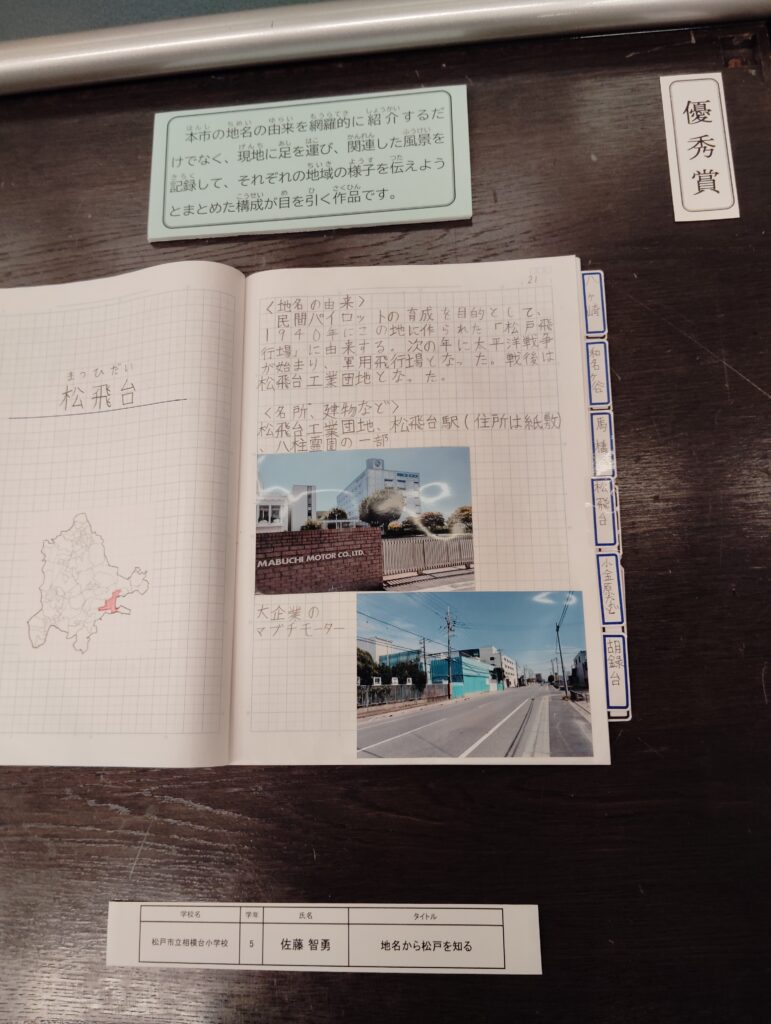 本市の地名の由来を網羅的に紹介するだ
けでなく、現地に足を運び、関連した風景を
記録して、それぞれの地域の様子を伝えよう
とまとめた構成が目を引く作品です。
優秀賞
まつひだい
松飛台
21
〈地名の由来〉
民間パイロットの育成を目的として、
1940年にこの地に作られた「松戸飛
行場」に由来する。次の年に太平洋戦争
が始まり、軍用飛行場となった。戦後は
松飛台工業団地となった。
〈名所、建物など〉
松飛台工業団地、松飛台駅(住所は紙敷)
、八柱霊園の一部
MABUCHI MOTOR CO., LTD.
大企業の
マブチモーター
八ヶ崎
和名ヶ谷
馬橋
松飛台
胡録台
学校名 学年 氏名 タイトル
松戸市立相模台小学校 5 佐藤 智勇 地名から松戸を知る